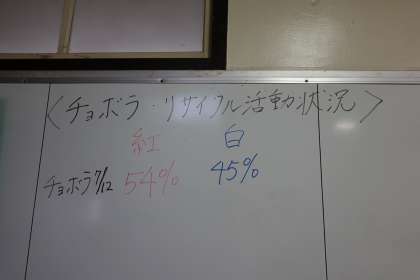 〈チョボラ・リサイクル活動状況〉
紅 白
チョボラ7/12 54% 45%